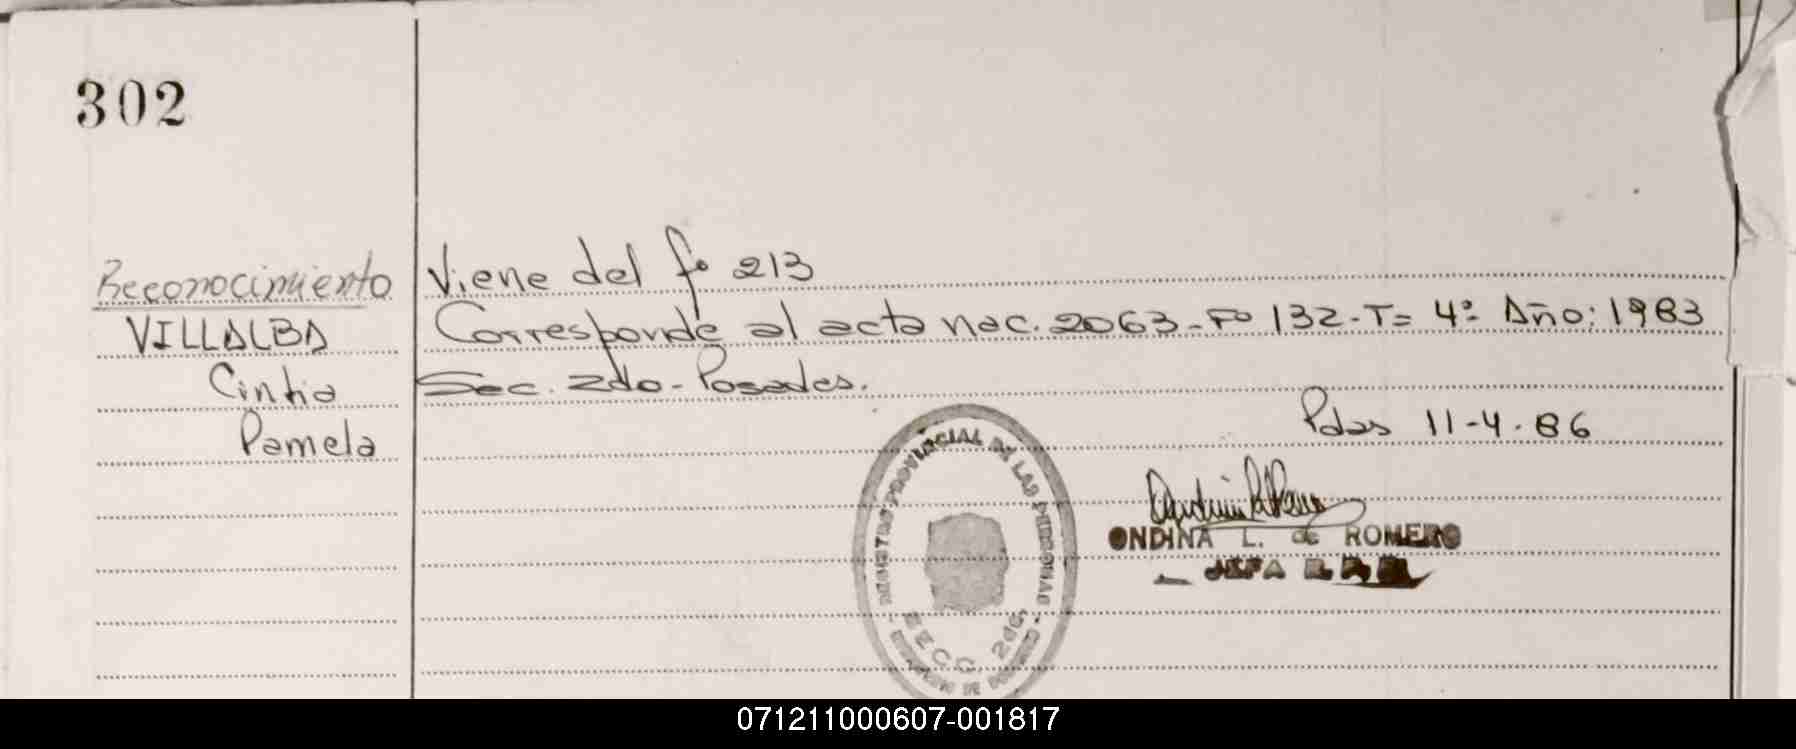 302
Reconocimiento
VILLALBA
Cintia
Pamela
Viene del fº 213
Corresponde al acta nac. 2063-Fº 132-T= 4º Año: 1983
Sec. 2do-Posadas.
Pdas 11-4-86
REGISTRO PROVINCIAL DE LAS PERSONAS
SECC. 2da.
ONDINA L. de ROMERO
JEFA
071211000607-001817